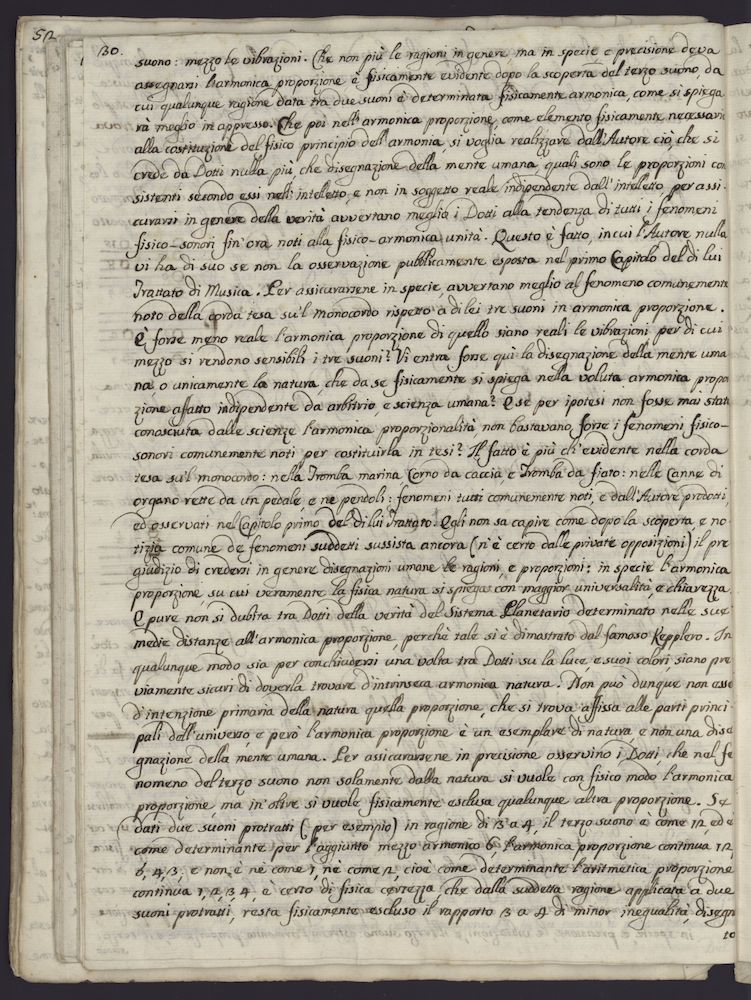 52
130.
suono: mezzo le vibrazioni. Che non più le ragioni in genere, ma in specie e precisione deva
assegnarsi l'armonica proporzione è fisicamente evidente dopo la scoperta del terzo suono, da
cui qualunque ragione data tra due suoni è determinata fisicamente armonica, come si spiega
rà meglio in appresso. Che poi nell'armonica proporzione, come elemento fisicamente necessario
alla costituzione del fisico principio dell'armonia, si voglia realizzare dall'Autore ciò, che si
crede da Dotti nulla più, che disegnazione della mente umana, quali sono le proporzioni con
sistenti secondo essi nell'intelletto, e non in soggetto reale indipendente dall'intelletto, per assi
curarsi in genere della verità avvertano meglio i Dotti alla tendenza di tutti i fenomeni
fisico-sonori fin'ora noti alla fisico-armonica unità. Questo è fatto, in cui l'Autore nulla
vi ha di suo se non la osservazione pubblicamente esposta nel primo Capitolo del di lui
Trattato di Musica. Per assicurarsene in specie, avvertano meglio al fenomeno comunemente
noto della corda tesa su'l monocordo rispetto a di lei tre suoni in armonica proporzione.
È forse meno reale l'armonica proporzione di quello siano reali le vibrazioni, per di cui
mezzo si rendono sensibili i tre suoni? Vi entra forse quì la disegnazione della mente uma
na, o unicamente la natura, che da se fisicamente si spiega nella voluta armonica propor
zione affatto indipendente da arbitrio, e scienza umana? E se per ipotesi non fosse mai stata
conosciuta dalle scienze l'armonica proporzionalità, non bastavano forse i fenomeni fisico-
sonori comunemente noti per costituirla in tesi? Il fatto è più ch'evidente nella corda
tesa su'l monocordo: nella Tromba marina, Corno da caccia, e Tromba da fiato: nelle Canne di
organo rette da un pedale, e ne pendoli: fenomeni tutti comunemente noti, e dall'Autore prodotti,
ed osservati nel Capitolo primo del di lui Trattato. Egli non sa capire come dopo la scoperta, e no
tizia comune de fenomeni suddetti sussista ancora (n'è certo dalle private opposizioni) il pre
giudizio di credersi in genere disegnazioni umane le ragioni, e proporzioni: in specie l'armonica
proporzione, su cui veramente la fisica natura si spiega con maggior universalità, e chiarezza.
E pure non si dubita tra Dotti della verità del Sistema Planetario determinato nelle sue
medie distanze all'armonica proporzione, perchè tale si è dimostrato dal famoso Kepplero. In
qualunque modo sia per conchiudersi una volta tra Dotti su la luce, e suoi colori, siano pre
viamente sicuri di doverla trovare d'intrinseca armonica natura. Non può dunque non esse
d'intenzione primaria della natura quella proporzione, che si trova affissa alle parti princi
pali dell'universo, e però l'armonica proporzione è un esemplare di natura, e non una diseg
gnazione della mente umana. Per assicurarsene in precisione osservino i Dotti che nel fe
nomeno del terzo suono non solamente dalla natura si vuole con fisico modo l'armonica
proporzione, ma in oltre si vuole fisicamente esclusa qualunque altra proporzione. Se
dati due suoni protratti (per esempio) in ragione di 3 a 4, il terzo suono è come 12, ed è
come determinante per l'aggiunto mezzo armonico 6, l'armonica proporzione continua 12,
6, 4, 3, e non è nè come 1, nè come 2, cioè come determinante l'aritmetica proporzione
continua 1, 2, 3, 4, è certo di fisica certezza, che dalla suddetta ragione applicata a due
suoni protratti, resta fisicamente escluso il rapporto 3 a 4 di minor inegualità, disegn
to